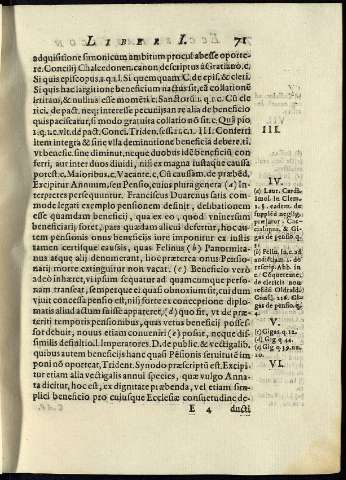 LIBER I. 71
adquisitione simonicum ambitum procul abesse oporte-
re. Concilij Chalcedonen. canon descriptus à Gratiano. c.
Si quis episcopus. 1. q. 1. c. Si quemquam. C. de epis. & cleri.
Si quis hac largitione beneficium nactus sit, ea collationẽ
irritam, & nullius esse momẽti. c. Sanctorũ 1. q. 1. c. Cũ cle-
rici. de pact. neq; interesse pecuniis, an re alia de beneficio
quis paciscatur, si modo gratuita collatio nõ sit c. Quã pio
1. q. 2. c. vlt. de pact. Conci. Triden. sess. 21. c. 1. III. Conferri
item integra & sine vlla deminutione beneficia debere. ti.
vt benefic. sine diminut. neque duobus idẽ beneficiũ con-
ferri, aut inter duos diuidi, nisi ex magna iustaque caussa
poterit. c. Maioribus. c. Vacante. c. Cũ caussam. de præbẽd.
Excipitur Annuum, seu Pensio, cuius plura genera (a) In-
terpretes persequuntur. Franciscus Duarenus satis com-
mode legati exemplo pensionem definit, delibationem
esse quamdam beneficii, qua ex eo, quod vniuersum
beneficiarij foret, pars quædam alicui defertur, hoc au-
tem pensionis onus beneficijs iure imponitur ex iustis
tantum certisque caussis, quas Felinus (b) Panormita-
nus atque alij denumerant, hoc præterea onus Pensio-
narij morte extinguitur non vacat. (c) Beneficio verò
adeò inhæret, vt ipsum sequatur ad quamcumque perso-
nam transeat, semperque ei quasi obnoxium sit, cui dum
viuit concessa pensio est, nisi forte ex conceptione diplo-
matis aliud actum fuisse appareret, (d) quo sit, vt de præ-
teriti temporis pensionibus, quas vetus beneficij posses-
sor debuit, nouus etiam conueniri (e) possit, neque dis-
similis definitio l. Imperatores. D. de public. & vectigalib.
quibus autem beneficijs hanc quasi Pẽsionis seruitutẽ im-
poni nõ oporteat, Trident. Synodo præscriptũ est. Exci-
pitur etiam alia vectigalis annui species, quæ vulgo Anna-
ta dicitur, hoc est, ex dignitate præbenda, vel etiam sim-
plici beneficio pro cuiusque Ecclesiæ consuetudine de-
E 4 ducti
III.
IV.
(a) Laur. Cardi.
Imol. in Clem.
1. §. eadem. de
supplẽd. neglig.
prælator.
Gi-
gas de pensio q.
(b) Felin.
V.
(c) Gigas q. 12.
(d) Gig. q. 44.
(e) Gig. q. 19. nu.
10.
VI.